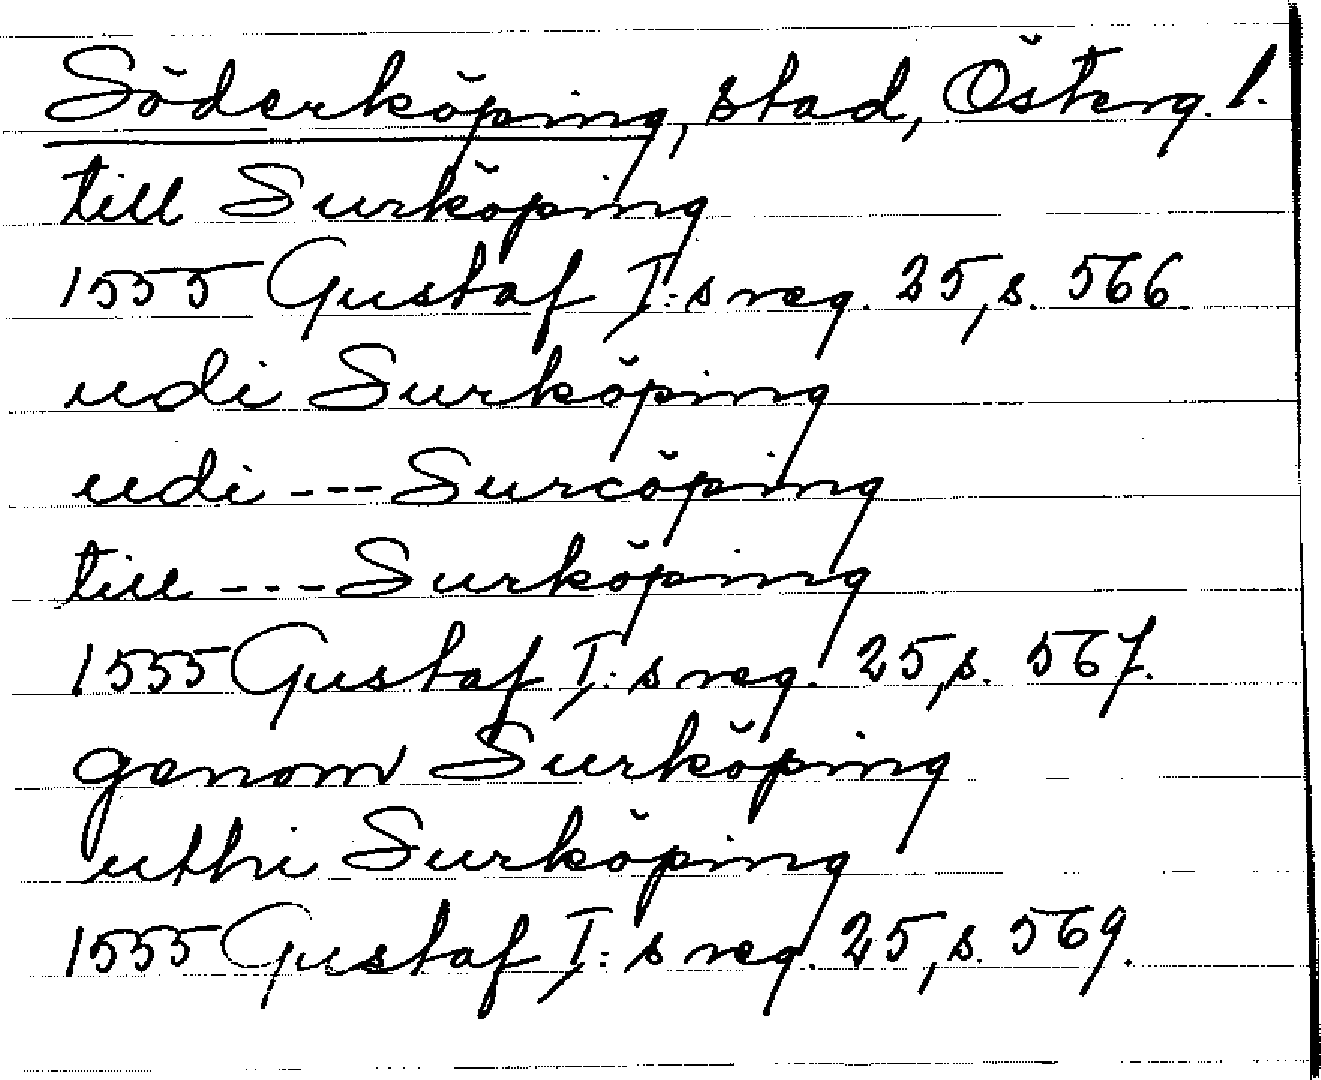 Söderköping, stad, Österg. l.
till Surköping
1555 Gustaf I:s reg. 25, s. 566
udi Surköping
udi --- Surcöping
till --- Surköping
1555 Gustaf I:s reg. 25, s. 567.
genom Surköping
uthi Surköping
1555 Gustaf I:s reg. 25, s. 569.